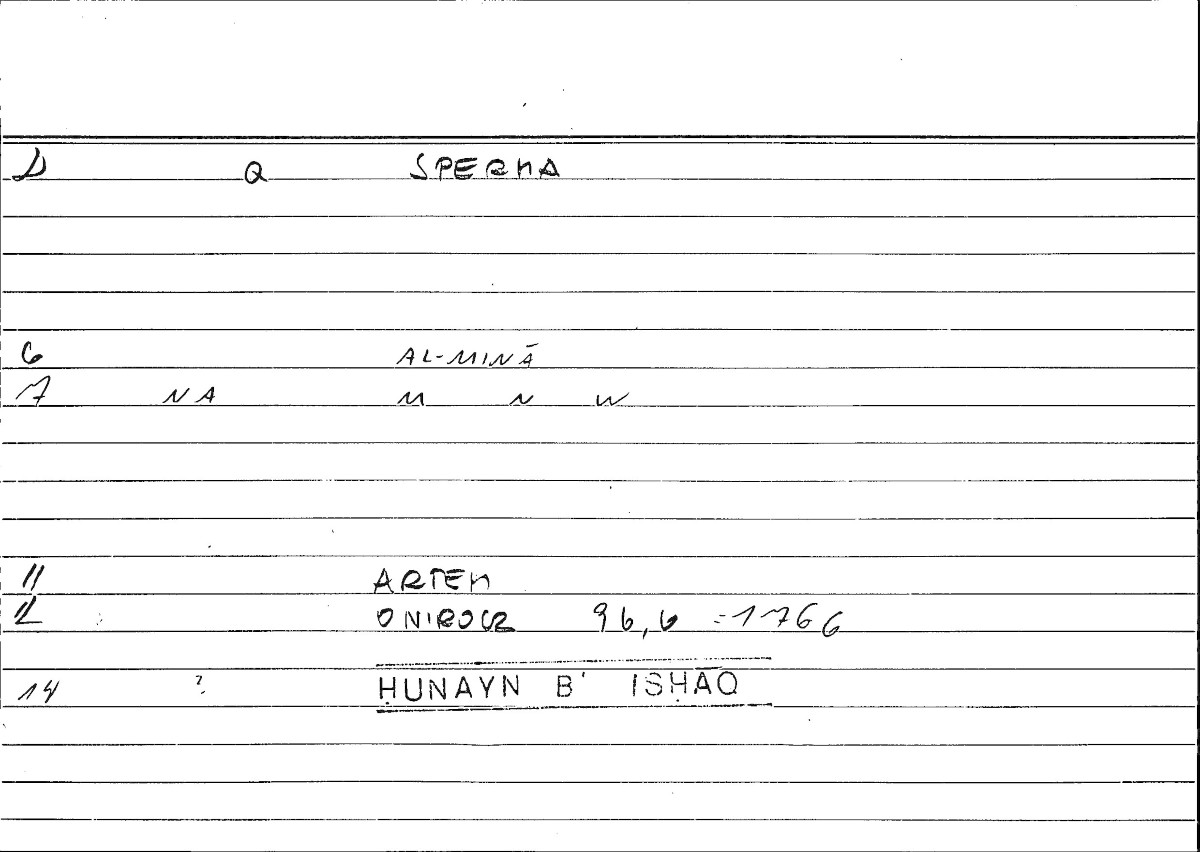 D Q SPERMA
6 AL-MINĀ
7 NA M N W
11 ARTEM
12 ONIROCR 96,6 =1766
14 ? ḤUNAYN B' ISḤĀQ